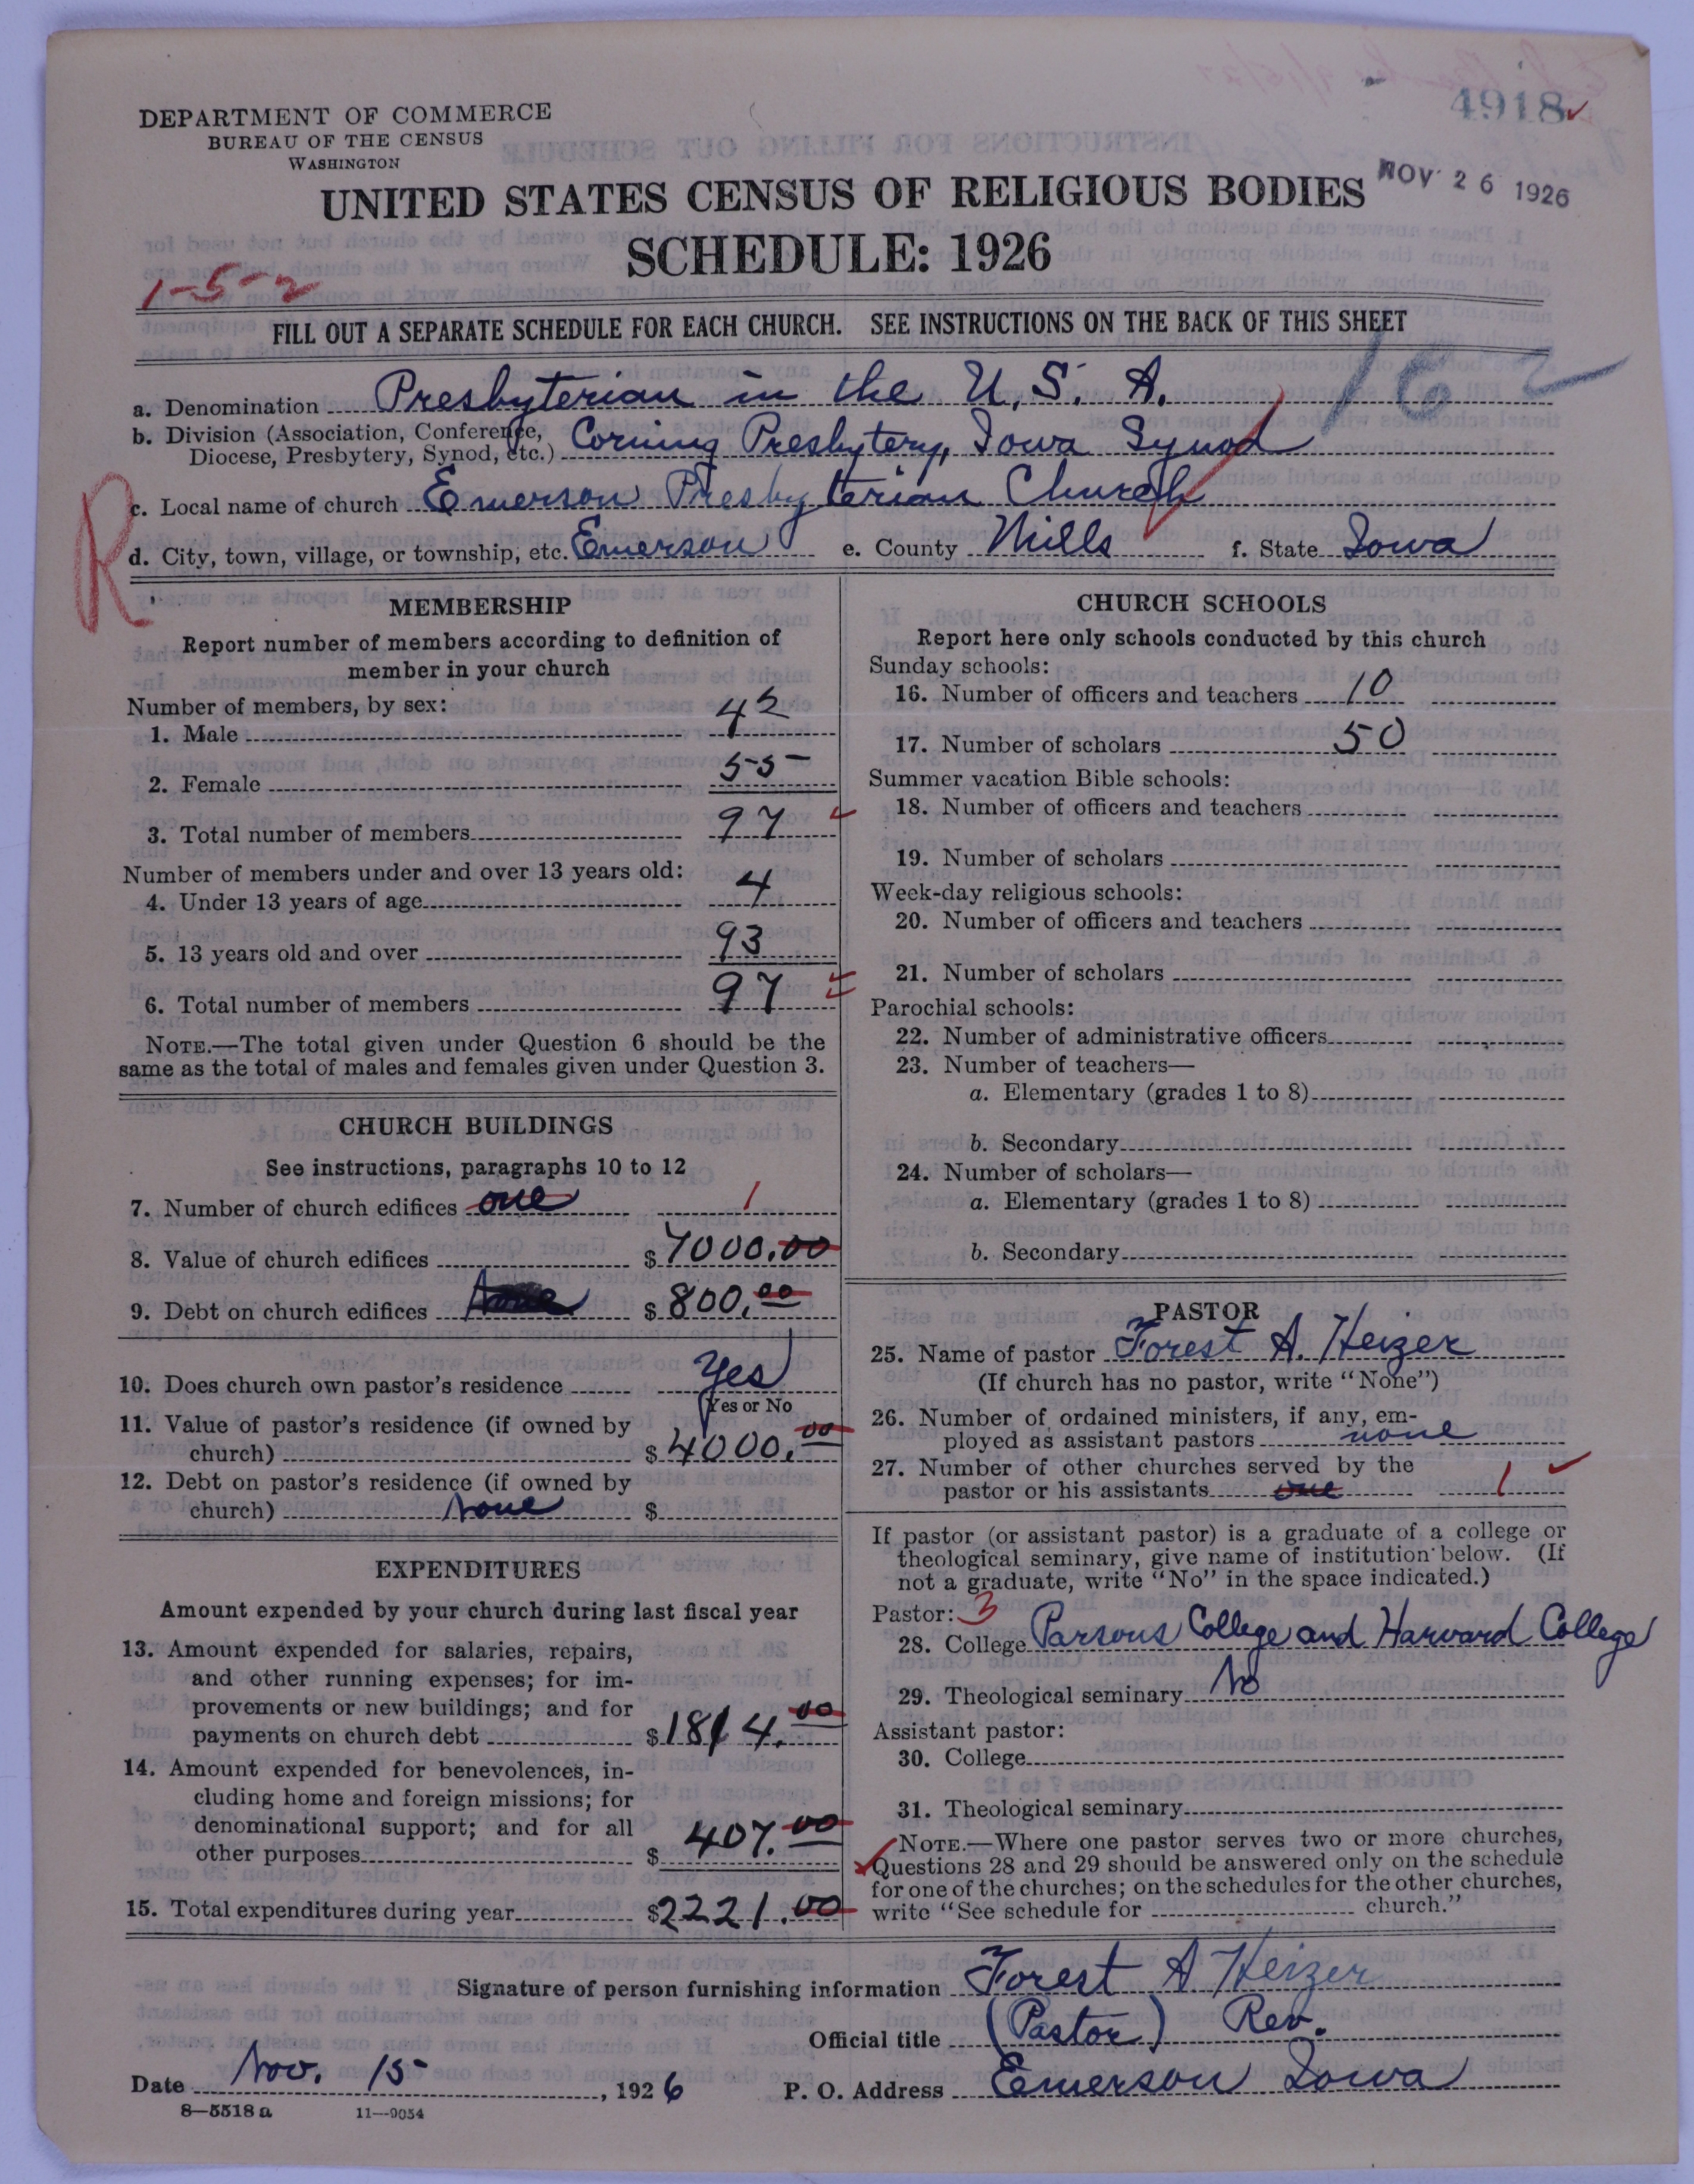 4918
DEPARTMENT OF COMMERCE
BUREAU OF THE CENSUS
WASHINGTON
NOV 26 1926
UNITED STATES CENSUS OF RELIGIOUS BODIES
SCHEDULE: 1926
1-5-2
FILL OUT A SEPARATE SCHEDULE FOR EACH CHURCH. SEE INSTRUCTIONS ON THE BACK OF THIS SHEET
162
a. Denomination Presbyterian in the U. S. A.
b. Division (Association, Conference,
Diocese, Presbytery, Synod, etc.) Corning Presbytery, Iowa Synod
R
c. Local name of church Emerson Presbyterian Church
d. City, town, village, or township, etc. Emerson e. County Mills f. State Iowa
MEMBERSHIP
Report number of members according to definition of
member in your church
Number of members, by sex:
1. Male 42
2. Female 55
3. Total number of members 97
Number of members under and over 13 years old:
4. Under 13 years of age 4
5. 13 years old and over 93
6. Total number of members 97
NOTE.—The total given under Question 6 should be the
same as the total of males and females given under Question 3.
CHURCH BUILDINGS
See instructions, paragraphs 10 to 12
7. Number of church edifices one 1
8. Value of church edifices $7000.00
9. Debt on church edifices None $800.00
10. Does church own pastor's residence Yes
Yes or No
11. Value of pastor's residence (if owned by
church) $4000.00
12. Debt on pastor's residence (if owned by
church) None $
EXPENDITURES
Amount expended by your church during last fiscal year
13. Amount expended for salaries, repairs,
and other running expenses; for im-
provements or new buildings; and for
payments on church debt $1814.00
14. Amount expended for benevolences, in-
cluding home and foreign missions; for
denominational support; and for all
other purposes $407.00
15. Total expenditures during year $2221.00
CHURCH SCHOOLS
Report here only schools conducted by this church
Sunday schools:
16. Number of officers and teachers 10
17. Number of scholars 50
Summer vacation Bible schools:
18. Number of officers and teachers
19. Number of scholars
Week-day religious schools:
20. Number of officers and teachers
21. Number of scholars
Parochial schools:
22. Number of administrative officers
23. Number of teachers—
a. Elementary (grades 1 to 8)
b. Secondary
24. Number of scholars—
a. Elementary (grades 1 to 8)
b. Secondary
PASTOR
25. Name of pastor Forest A. Heizer
(If church has no pastor, write "None")
26. Number of ordained ministers, if any, em-
ployed as assistant pastors none
27. Number of other churches served by the
pastor or his assistants one 1
If pastor (or assistant pastor) is a graduate of a college or
theological seminary, give name of institution below. (If
not a graduate, write "No" in the space indicated.)
Pastor: 3
28. College Parsons College and Harvard College
29. Theological seminary No
Assistant pastor:
30. College
31. Theological seminary
NOTE.—Where one pastor serves two or more churches,
Questions 28 and 29 should be answered only on the schedule
for one of the churches; on the schedules for the other churches,
write "See schedule for church."
Signature of person furnishing information Forest A Heizer
Official title (Pastor) Rev.
Date Nov. 15, 1926 P. O. Address Emerson Iowa
8—5518 a 11—9054